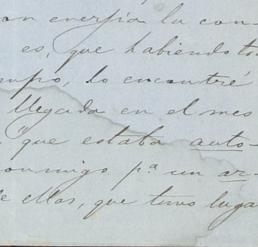 an energía la con-
es, que habiendo to
mpo, lo encontré
llegada en el mes
que estaba auto-
conmigo pª un ar-
de ellas, que tuvo luga